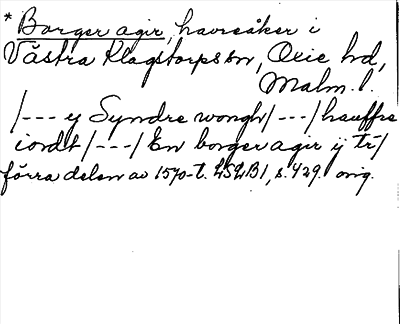 * Borger agir, havreåker i
Västra Klagstorps sn, Oxie hd,
Malm. l.
/--- ij Syndre wongh/---/hauffre
iordt/---/En borger agir ij tr/
förra delen av 1570-t. LSLB1, s. 429. orig.